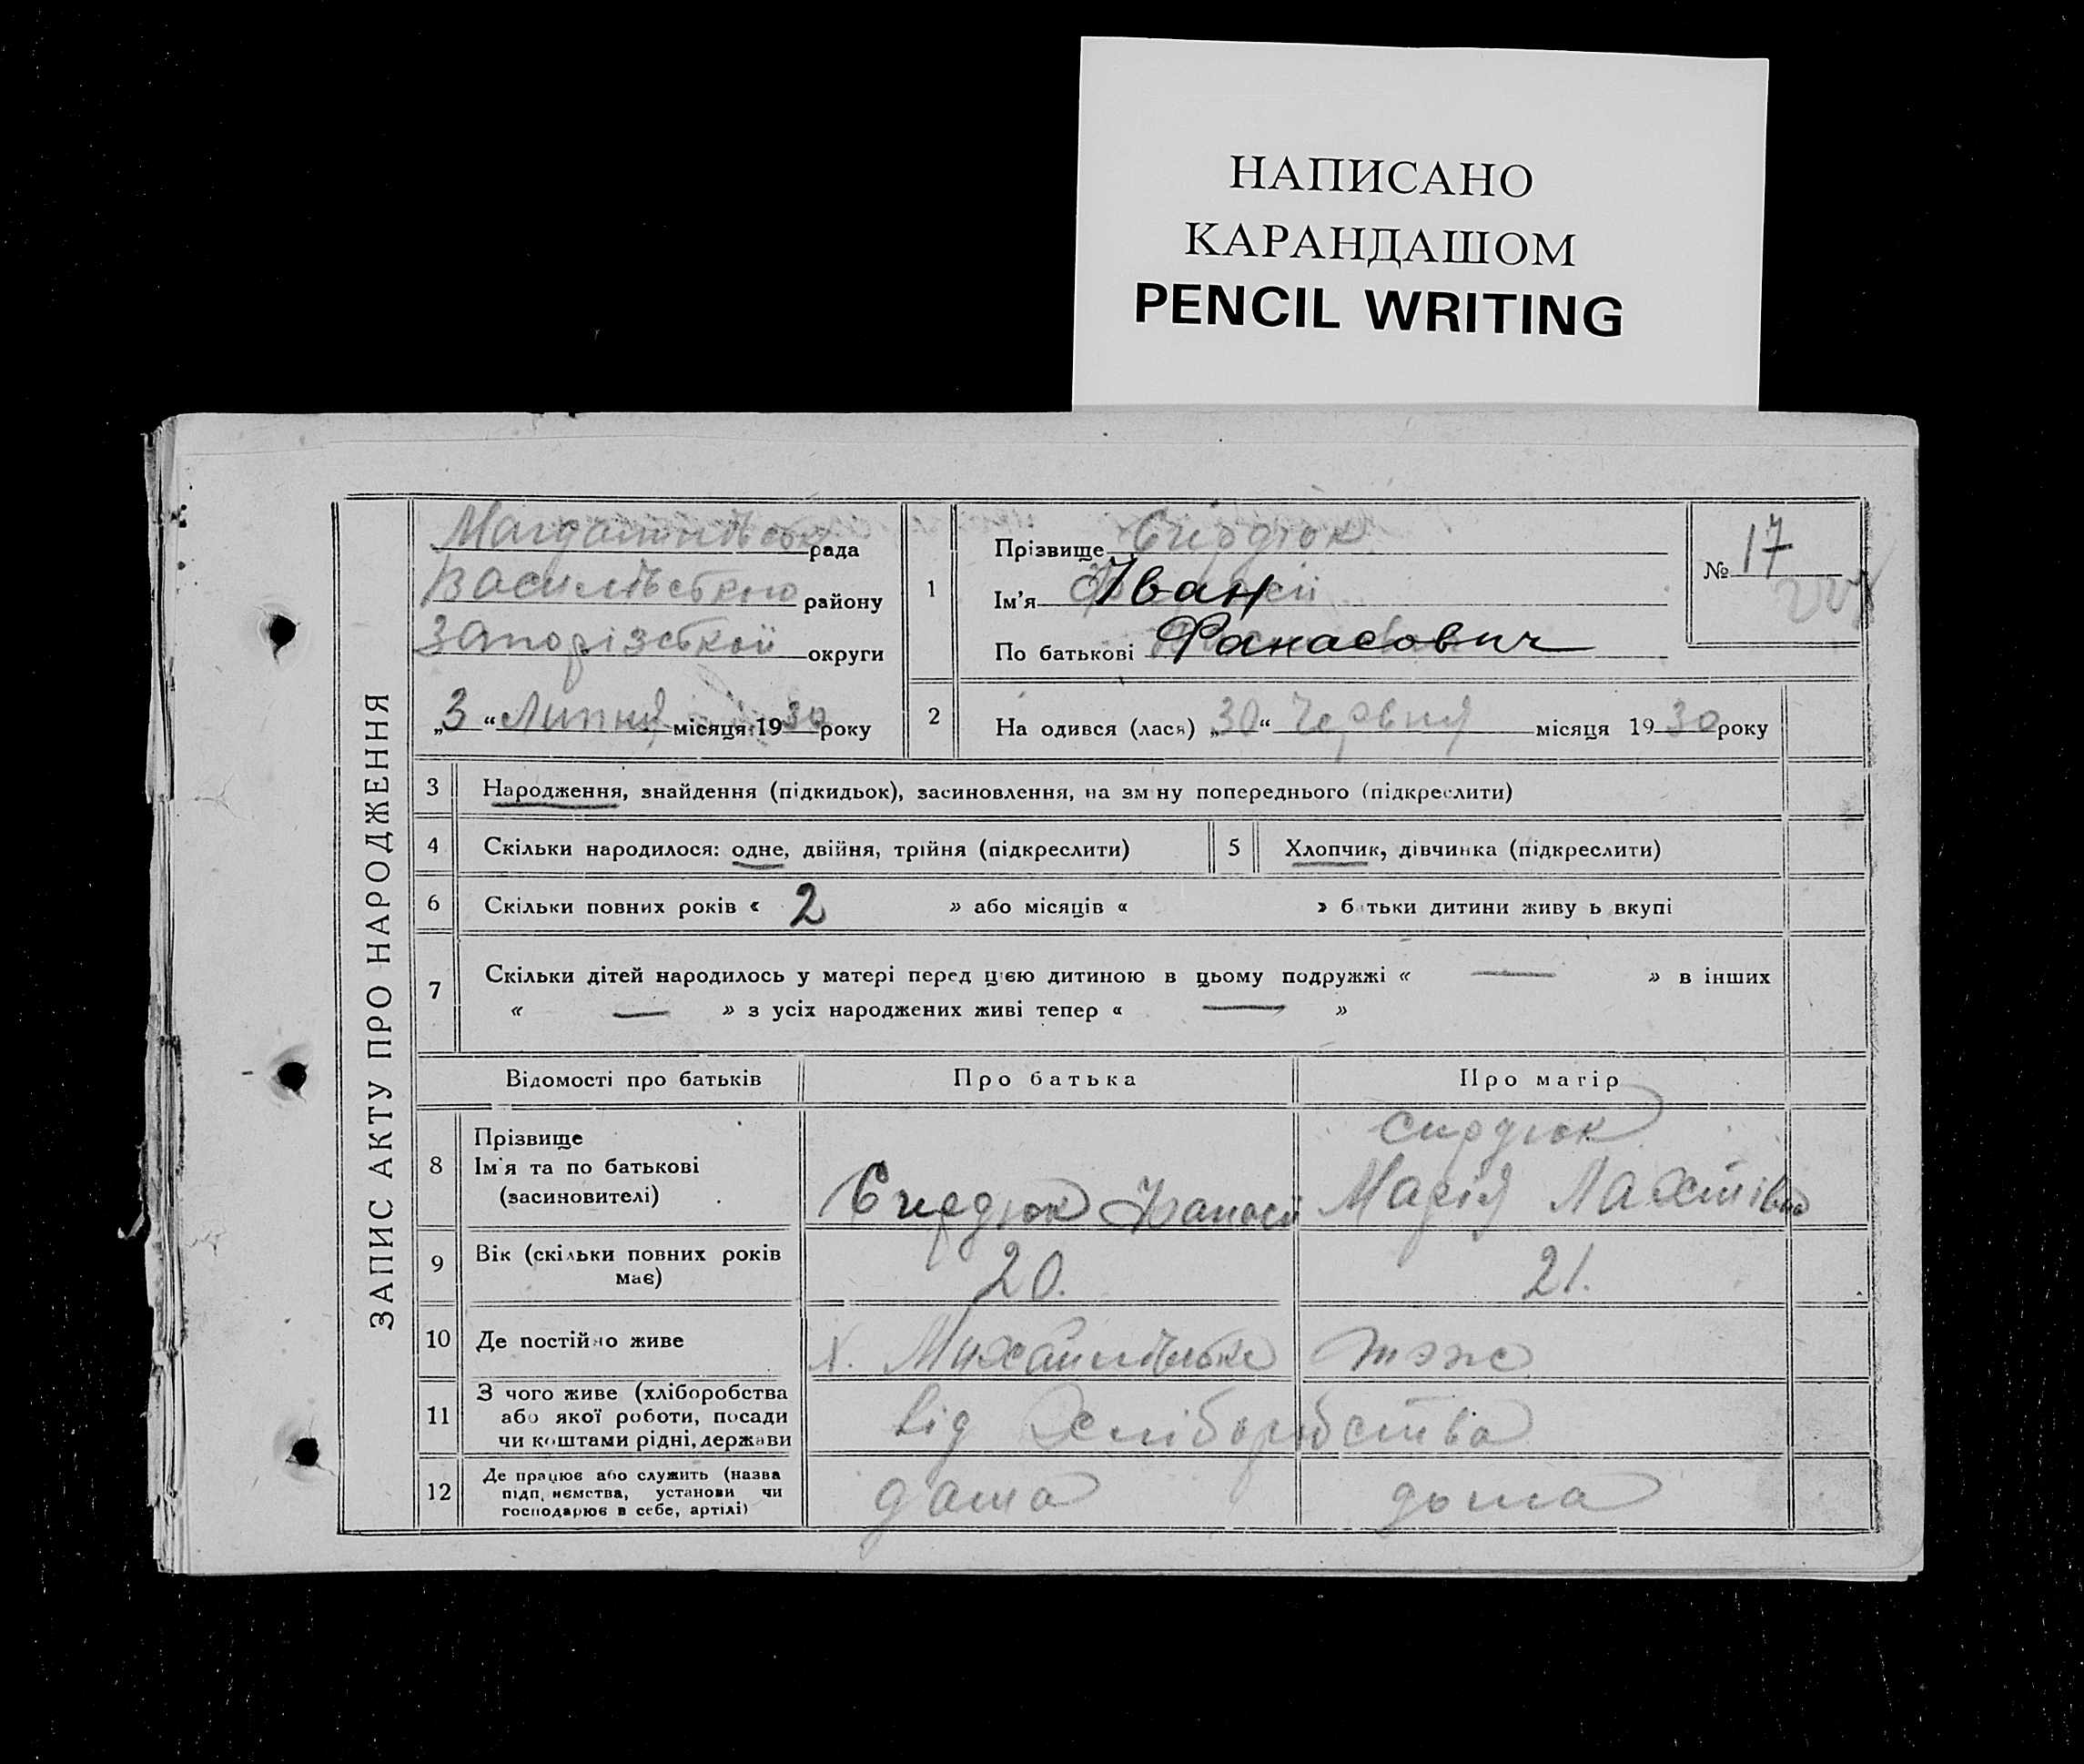 НАПИСАНО
КАРАНДАШОМ
PENCIL WRITING
ЗАПИС АКТУ ПРО НАРОДЖЕННЯ
рада
Василівського району
Запорізської округи
„3“ Липня місяця 1930 року
1
Прізвище Сирдюк
Ім'я Іван
По батькові Фанасович
№ 17
2
На одився (лася) „30“ Червня місяця 1930 року
3 Народження, знайдення (підкидьок), засиновлення, на зм ну попереднього (підкреслити)
4 Скільки народилося: одне, двійня, трійня (підкреслити) 5 Хлопчик, дівчинка (підкреслити)
6 Скільки повних років « 2 » або місяців « » б тьки дитини живу ь вкупі
7 Скільки дітей народилось у матері перед цією дитиною в цьому подружжі « — » в інших
« — » з усіх народжених живі тепер « — »
Відомості про батьків Про батька Про матір
8 Прізвище
Ім'я та по батькові
(засиновителі)
Сирдюк Панасій
Сирдюк
Марія
9 Вік (скільки повних років
має)
20. 21.
10 Де постійно живе х. теж
11 З чого живе (хліборобства
або якої роботи, посади
чи коштами рідні, держави
від Хліборобства
12 Де працює або служить (назва
підп. иємства, установи чи
господарює в себе, артілі)
дома дома